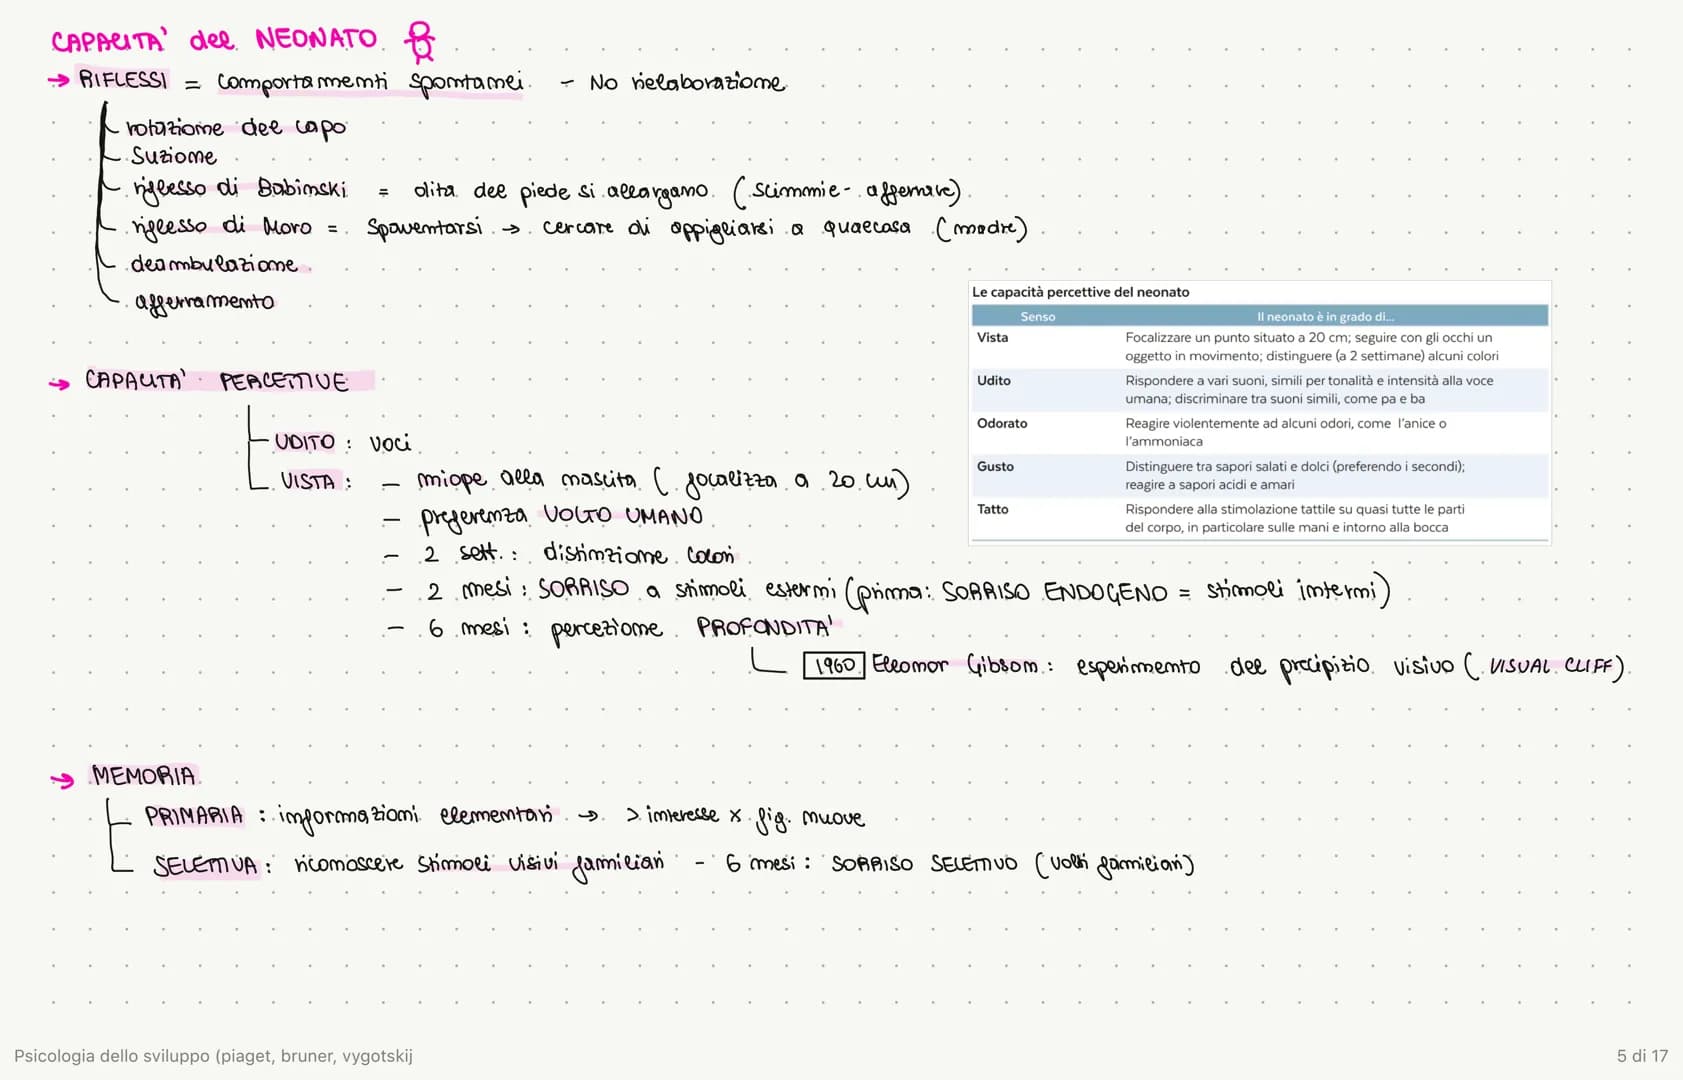 CAPACITA' del NEONATO
→ RIFLESSI = comportamenti spontanei - No rielaborazione
rotazione del capo
Suzione
riflesso di Babinski = dita del piede si allargano (scimmie - afferrare)
riflesso di Moro = Spaventarsi → cercare di appigliarsi a qualcosa (madre)
deambulazione
afferramento
Le capacità percettive del neonato
Senso Il neonato è in grado di...
Vista Focalizzare un punto situato a 20 cm; seguire con gli occhi un
oggetto in movimento; distinguere (a 2 settimane) alcuni colori
Udito Rispondere a vari suoni, simili per tonalità e intensità alla voce
umana; discriminare tra suoni simili, come pa e ba
Odorato Reagire violentemente ad alcuni odori, come l'anice o
l'ammoniaca
Gusto Distinguere tra sapori salati e dolci (preferendo i secondi);
reagire a sapori acidi e amari
Tatto Rispondere alla stimolazione tattile su quasi tutte le parti
del corpo, in particolare sulle mani e intorno alla bocca
→ CAPACITA' PERCETTIVE
UDITO : voci
VISTA : - miope alla nascita (focalizza a 20 cm)
- preferenza VOLTO UMANO
- 2 sett. : distinzione colori
- 2 mesi : SORRISO a stimoli esterni (prima: SORRISO ENDOGENO = stimoli interni)
- 6 mesi : percezione PROFONDITA'
1960 Eleonor Gibson : esperimento del precipizio visivo (VISUAL CLIFF)
→ MEMORIA
PRIMARIA : informazioni elementari → > interesse x fig. nuove
SELETTIVA : riconoscere stimoli visivi familiari - 6 mesi : SORRISO SELETTIVO (volti familiari)
Psicologia dello sviluppo (piaget, bruner, vygotskij
5 di 17